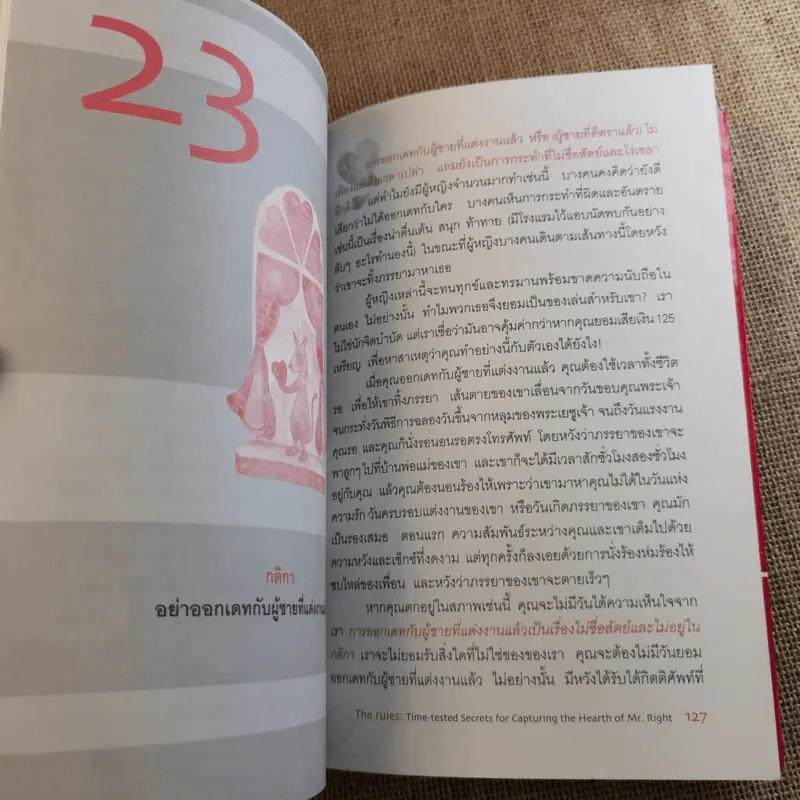 23
กติกา
อย่าออกเดทกับผู้ชายที่แต่งงาน
การออกเดทกับผู้ชายที่แต่งงานแล้ว หรือ (ผู้ชายที่ตีตราแล้ว) ไม่
เพียงแต่เสียเวลาเปล่า แถมยังเป็นการกระทำที่ไม่ซื่อสัตย์และโง่เขลา
อีกด้วย แต่ทำไมยังมีผู้หญิงจำนวนมากทำเช่นนี้ บางคนคงคิดว่ายังดี
เสียกว่าไม่ได้ออกเดทกับใคร บางคนเห็นการกระทำที่ผิดและอันตราย
เช่นนี้เป็นเรื่องน่าตื่นเต้น สนุก ท้าทาย (มีโรงแรมไว้แอบนัดพบกันอย่าง
ลับๆ อะไรทำนองนี้) ในขณะที่ผู้หญิงบางคนเดินตามเส้นทางนี้โดยหวัง
ว่าเขาจะทิ้งภรรยามาหาเธอ
ผู้หญิงเหล่านี้จะทนทุกข์และทรมานพร้อมขาดความนับถือใน
ตนเอง ไม่อย่างนั้น ทำไมพวกเธอจึงยอมเป็นของเล่นสำหรับเขา? เรา
ไม่ใช่นักจิตบำบัด แต่เราเชื่อว่ามันอาจคุ้มค่ากว่าหากคุณยอมเสียเงิน 125
เหรียญ เพื่อหาสาเหตุว่าคุณทำอย่างนี้กับตัวเองได้ยังไง!
เมื่อคุณออกเดทกับผู้ชายที่แต่งงานแล้ว คุณต้องใช้เวลาทั้งชีวิต
รอ เพื่อให้เขาทิ้งภรรยา เส้นตายของเขาเลื่อนจากวันขอบคุณพระเจ้า
จนกระทั่งวันพิธีการฉลองวันขึ้นจากหลุมของพระเยซูเจ้า จนถึงวันแรงงาน
คุณรอ และคุณก็นั่งรอนอนรอตรงโทรศัพท์ โดยหวังว่าภรรยาของเขาจะ
พาลูกๆ ไปที่บ้านพ่อแม่ของเขา และเขาก็จะได้มีเวลาสักชั่วโมงสองชั่วโมง
อยู่กับคุณ แล้วคุณต้องนอนร้องไห้เพราะว่าเขามาหาคุณไม่ได้ในวันแห่ง
ความรัก วันครบรอบแต่งงานของเขา หรือวันเกิดภรรยาของเขา คุณมัก
เป็นรองเสมอ ตอนแรก ความสัมพันธ์ระหว่างคุณและเขาเต็มไปด้วย
ความหวังและเซ็กซ์ที่งดงาม แต่ทุกครั้งก็ลงเอยด้วยการนั่งร้องห่มร้องไห้
ซบไหล่ของเพื่อน และหวังว่าภรรยาของเขาจะตายเร็วๆ
หากคุณตกอยู่ในสภาพเช่นนี้ คุณจะไม่มีวันได้ความเห็นใจจาก
เรา การออกเดทกับผู้ชายที่แต่งงานแล้วเป็นเรื่องไม่ซื่อสัตย์และไม่อยู่ใน
กติกา เราจะไม่ยอมรับสิ่งใดที่ไม่ใช่ของของเรา คุณจะต้องไม่มีวันยอม
ออกเดทกับผู้ชายที่แต่งงานแล้ว ไม่อย่างนั้น มีหวังได้รับได้กิตติศัพท์ที่
The rules: Time-tested Secrets for Capturing the Hearth of Mr. Right 127